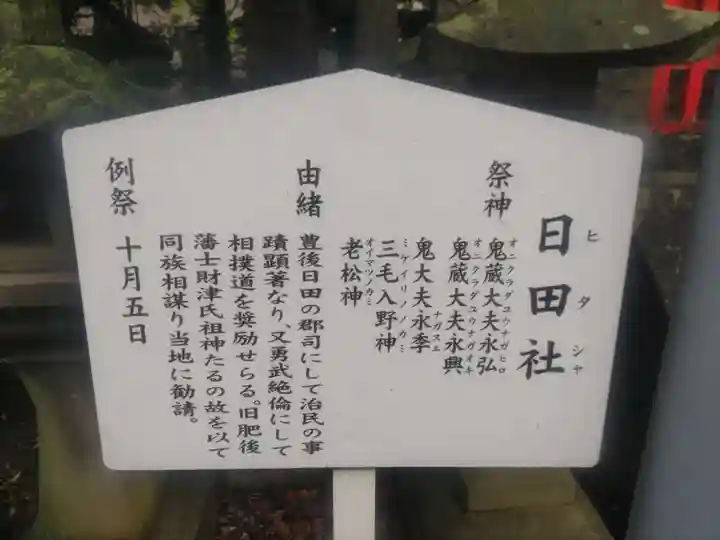 日田社
ヒタシャ
祭神
鬼蔵大夫永弘
オニクラダユウナガヒロ
鬼蔵大夫永興
オニクラダユウナガオキ
鬼大夫永季
ナガスエ
三毛入野神
ミケイリノノカミ
老松神
オイマツノカミ
由緒
豊後日田の郡司にして治民の事
蹟顕著なり、又勇武絶倫にして
相撲道を奨励せらる。旧肥後
藩士財津氏祖神たるの故を以て
同族相謀り当地に勧請。
例祭 十月五日